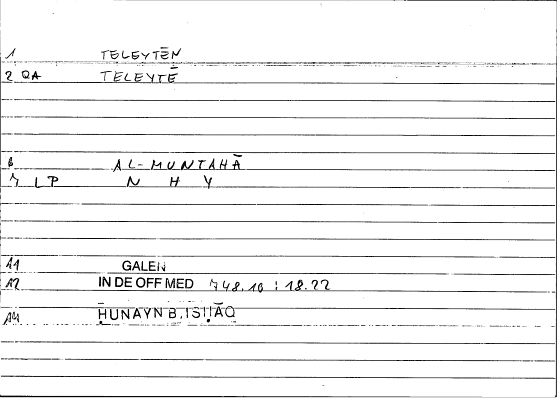 1 TELEYTĒN
2 QA TELEYTĒ
6 AL-MUNTAHĀ
7 LP N H Y
A1 GALEN
A2 IN DE OFF MED 748.10 : 18.22
A4 ḤUNAYN B. ISḤĀQ